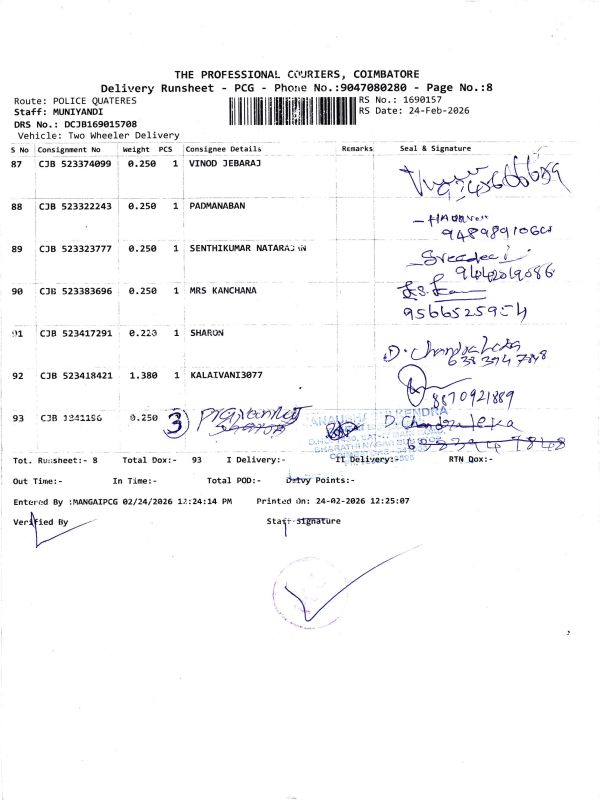 THE PROFESSIONAL COURIERS, COIMBATORE
Delivery Runsheet - PCG - Phone No.:9047080280 - Page No.:8
Route: POLICE QUATERES
RS No.: 1690157
Staff: MUNIYANDI
RS Date: 24-Feb-2026
DRS No.: DCJB169015708
Vehicle: Two Wheeler Delivery
S No Consignment No Weight PCS Consignee Details Remarks Seal & Signature
87 CJB 523374099 0.250 1 VINOD JEBARAJ
88 CJB 523322243 0.250 1 PADMANABAN
9489891060
89 CJB 523323777 0.250 1 SENTHIKUMAR NATARAJAN
Sreedevi
9442019086
90 CJB 523383696 0.250 1 MRS KANCHANA
9566525954
91 CJB 523417291 0.220 1 SHARON
D. Chandraleka
6383947848
92 CJB 523418421 1.380 1 KALAIVANI3077
8870921889
93 CJB 1341196 0.250 3
D. Chandraleka
6383947848
Tot. Runsheet:- 8 Total Dox:- 93 I Delivery:- II Delivery:- RTN Dox:-
Out Time:- In Time:- Total POD:- Delvy Points:-
Entered By :MANGAIPCG 02/24/2026 12:24:14 PM Printed On: 24-02-2026 12:25:07
Verified By Staff Signature